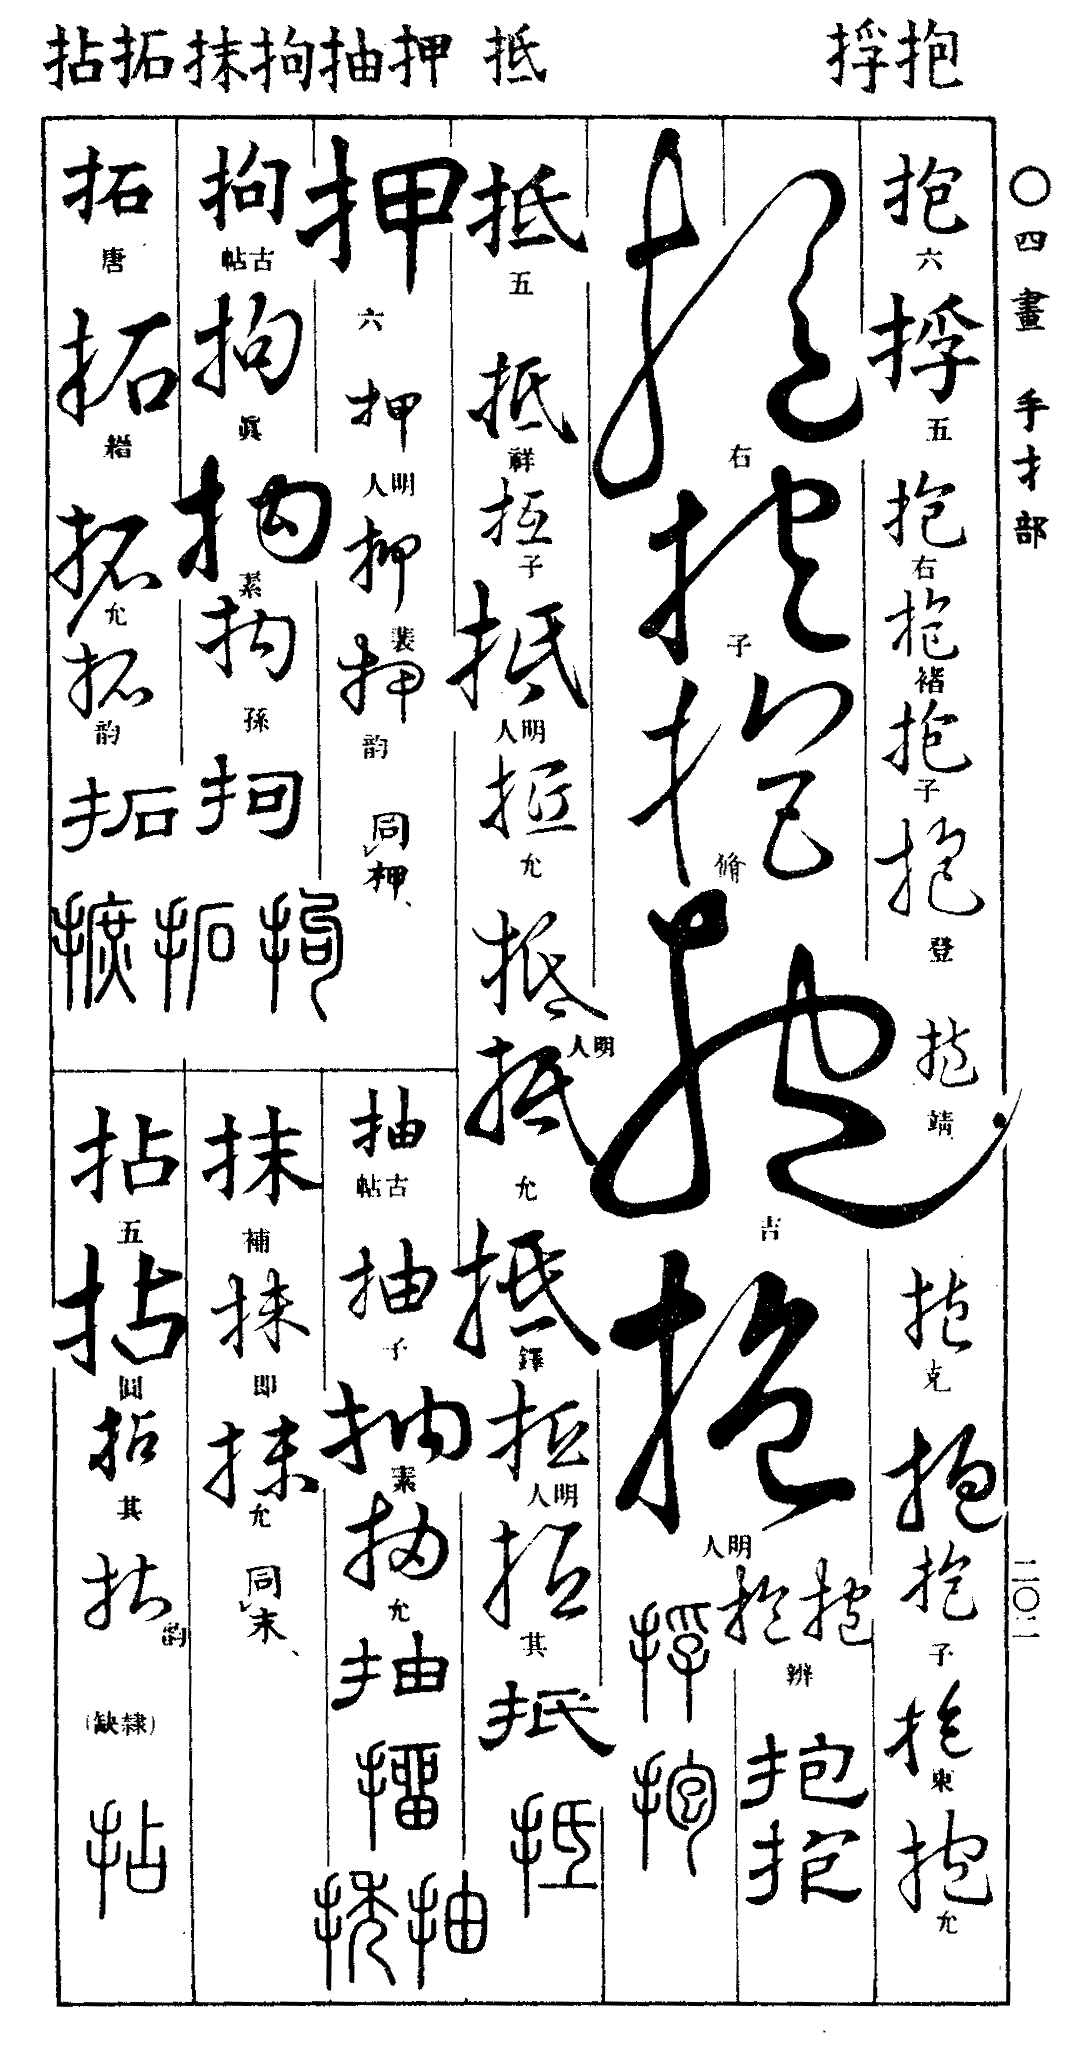 抱捊 抵 押抽拘抹拓拈
〇四畫 手扌部
二〇二
抱
六
捊
五
抱
右
抱
褚
抱
子
抱
登
抱
靖
抱
克
抱
抱
子
抱
東
抱
允
抱
右
抱
子
抱
脩
抱
吉
抱
明人
抱抱
辨
抱
抱
捊
抱
抵
五
抵
祥
抵
子
抵
明人
抵
允
抵
明人
抵
允
抵
鐸
抵
明人
抵
其
抵
抵
押
六
押
明人
押
裴
押
韵
同押、
拘
古帖
拘
眞
拘
素
拘
孫
拘
拘
拓
唐
拓
䅈
拓
允
拓
韵
拓
拓摭
抽
古帖
抽
子
抽
素
抽
允
抽
㨨
抽㧨
抹
補
抹
即
抹
允
同末、
拈
五
拈
圓
拈
其
拈
韵
(缺隸)
拈